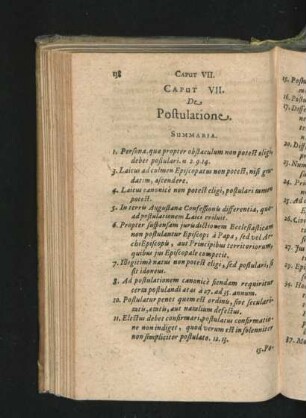 138 CAPUT VII.
CAPUT VII.
De
Postulatione.
SUMMARIA.
1. Persona, quæ propter obstaculum non potest eligi,
debet postulari. n 2. 9. 14.
3. Laicus ad culmen Episcopatus non potest, nisi gra-
datim, ascendere.
4. Laicus canonicè non potest eligi, postulari tamen
potest.
5. Interim Augustanæ Confessionis differentia, quo-
ad postulationem Laici
6. Propter suspensam jurisdictionem Ecclesiasticam
non postulantur Episcopi à Papa, sed vel Ar-
chiEpiscopis, aut Principibus territoriorum,
quibus jus Episcopale competit.
7. Illegitimè natus non potest eligi, sed postulari, si
sit idoneus.
8. Ad postulationem canonicè fiendam requiritur
certa postulandi ætas à 27. ad 35. annum.
10. Postulatur penes quem est ordinis, sive seculari-
ætatis, aut natalium defectus.
11. Electus debet confirmari, postulatus confirmatio-
ne non indiget, quod verum est in solenniter
non simpliciter postulato. 12. 13.